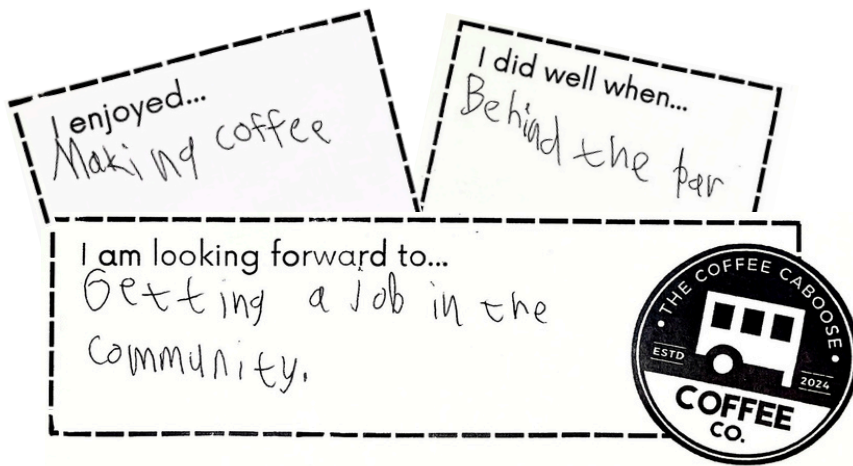 I enjoyed...
Making coffee
I did well when...
Behind the bar
I am looking forward to...
Getting a Job in the
community.
THE COFFEE CABOOSE
ESTD
2024
COFFEE
CO.